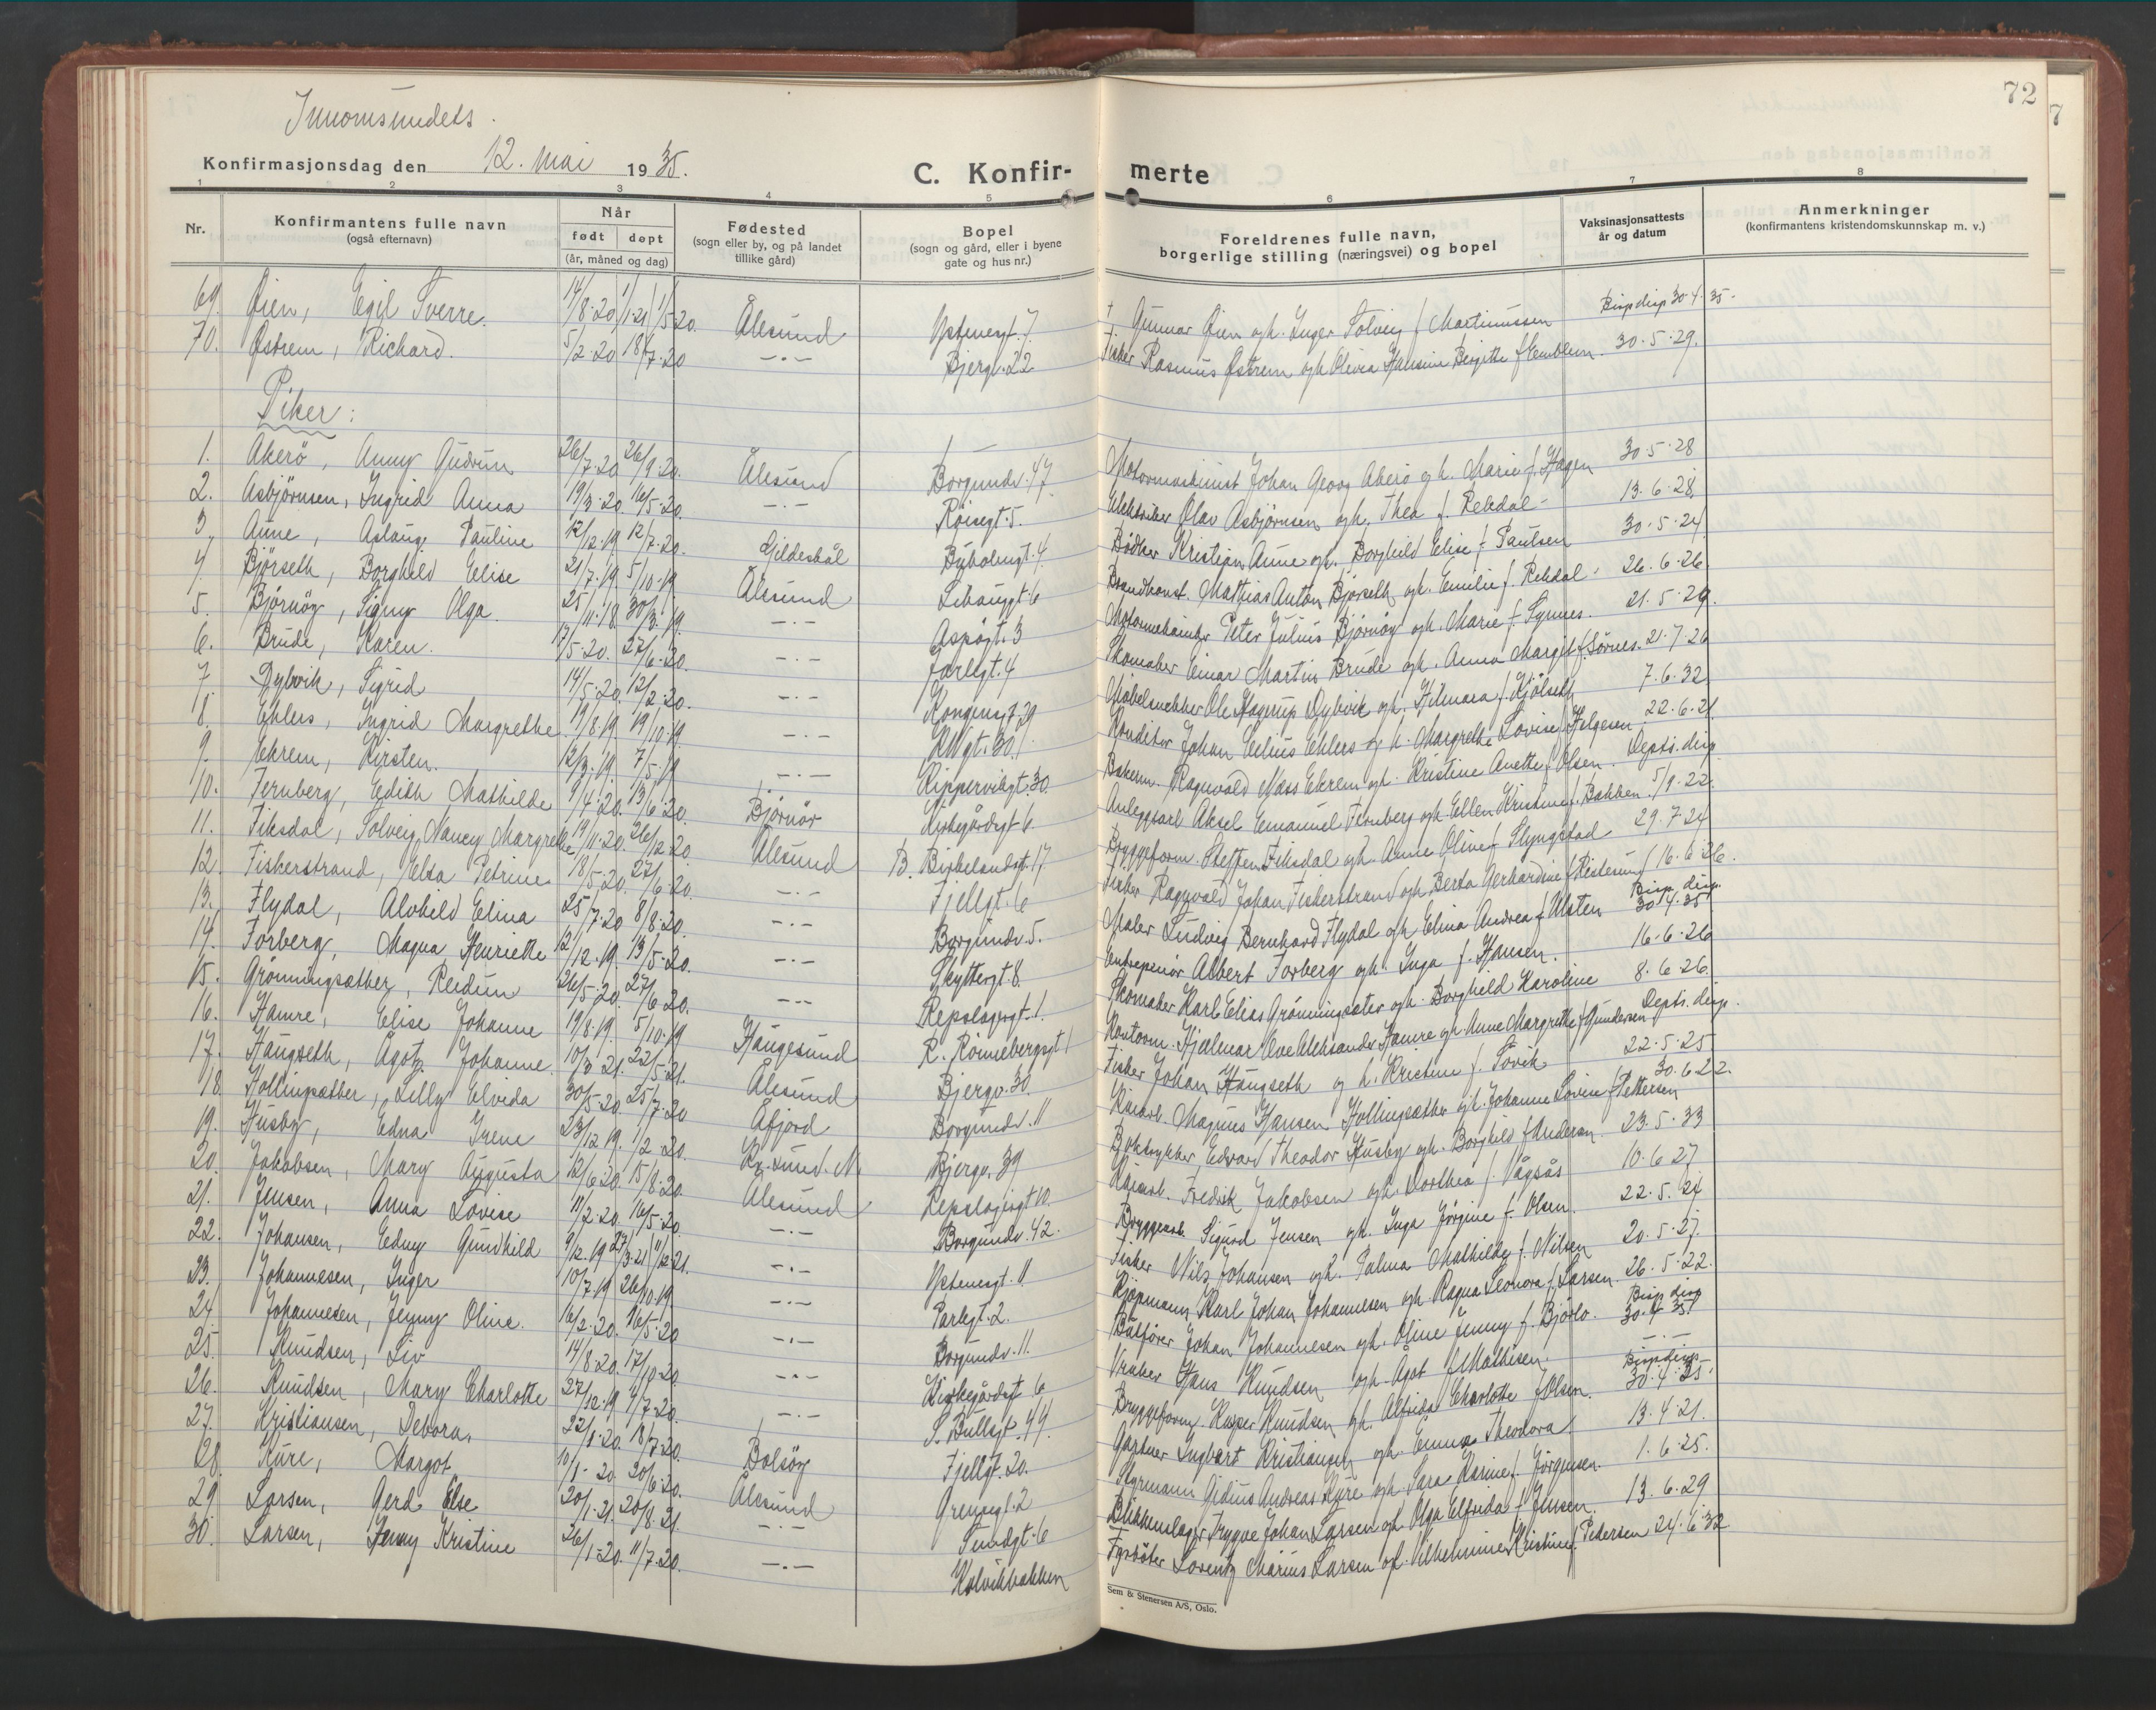 72
7
Innomsundets.
Konfirmasjonsdag den 12. mai 1935.
C. Konfir-merte
1 2 3 4 5 6 7 8
Nr. Konfirmantens fulle navn (også efternavn) Når født døpt (år, måned og dag) Fødested (sogn eller by, og på landet tillike gård) Bopel (sogn og gård, eller i byene gate og hus nr.) Foreldrenes fulle navn, borgerlige stilling (næringsvei) og bopel Vaksinasjonsattests år og datum Anmerkninger (konfirmantens kristendomskunnskap m. v.)
69. Øien, Egil Sverre. 14/8-20 1/1-21 1/5-20. Ålesund Ystenesgt. 7 † Gunnar Øien og h. Inger Solveig f. Martinussen Bisp disp 30-4-35.
70. Østrem, Richard. 5/2-20 18/7-20 -"- Bjergv. 22. Fisker Rasmus Østrem og h. Olevia Hansine Birgitte f. Emblem. 30-5-29.
Piker:
1. Akerö, Anny Gudrun 26/7-20 26/9-20. Ålesund Borgundv. 47 Motormaskinist Johan Georg Akerö og h. Marie f. Hagen 30-5-28
2. Asbjörnsen, Ingrid Anna 19/3-20. 16/5-20. -"- Röisegt. 5. Elektriker Olav Asbjörnsen og h. Thea f. Rekdal 13-6-28.
3. Aune, Aslaug Pauline 12/12-19 12/7-20. Gildeskål Byholmgt. 4 Bödker Kristian Aune og h. Borghild Elise f. Paulsen 30-5-24
4. Björseth, Borghild Elise 21/7-19. 5/10-19. Ålesund Lihauggt. 6 Brandkonst. Mathias Anton Björseth og h. Emilie f. Rekdal 26-6-26.
5. Björnöy, Signy Olga. 25/11-18. 30/3-19. -"- Aspögt. 3 Peter Julius Björnöy og h. Marie f. Synnes. 21-5-29.
6. Brude, Karen. 17/5-20. 27/6-20. -"- Jarlegt. 4 Skomaker Einar Martin Brude og h. Anna Margit f. Sörnes. 21-7-26
7 Dybvik, Sigrid 14/5-20. 12/2-20. -"- Kongensgt. 29 Möbelsnekker Ole Hagerup Dybvik og h. Hilmara f. Kjölseth 7-6-32
8. Ehlers, Ingrid Margrethe 19/8-19 19/10-19. -"- R. Wgt. 30. Konditor Johan Celius Ehlers og h. Margrethe Lovise f. Helgesen 22-6-21
9. Ekrem, Kirsten. 12/3-19. 7/5-19 -"- Kippervikgt. 30. Bakerm. Ragnvald Mass Ekrem og h. Kristine Anette f. Olsen. Depts. disp
10. Fernberg, Edith Mathilde 9/4-20. 13/6-20. Björnör Kirkegårdgt. 6. Anleggsarb Aksel Emanuel Fernberg og h. Ellen Kristine f. Bakken. 5/9-22.
11. Fiksdal, Solveig Nancy Margrethe 19/11-20. 26/12-20. Ålesund B. Birkelandsgt. 17 Bryggeform. Steffen Fiksdal og h. Anne Oline f. Slyngstad 29-7-24
12. Fiskerstrand, Elsa Petrine 18/5-20. 27/6-20. -"- Fjellgt. 6 Fisker Ragnvald Johan Fiskerstrand og h. Berta Gerhardine f. Kistesund 16-6-26.
13. Flydal, Alvhild Elina 25/7-20 8/8-20. -"- Borgundv. 5. Maler Ludvig Bernhard Flydal og h. Elina Andrea f. Ulsten Bisp. disp. 30-4-35
14. Forberg, Magna Henriette 12/12-19. 13/5-20. -"- Skyttergt. 8. Entreprenör Albert Forberg og h. Inga f. Hansen. 16-6-26
15. Grönningsæther, Reidun 26/5-20. 27/6-20. -"- Repslagergt. 1. Skomaker Karl Elias Grönningsæter og h. Borghild Karoline 8-6-26.
16. Hamre, Elise Johanne 19/8-19. 5/10-19 Haugesund R. Rönnebergsgt. 1 Kontorm. Hjalmar Ove Aleksander Hamre og h. Anne Margrethe f. Gundersen Depts. disp.
17. Haugseth, Ågot Johanne 10/3-21. 22/5-21. Ålesund Bjergv. 30. Fisker Johan Haugseth og h. Kristine f. Sövik 22-5-25
18. Hollingsæther, Lilly Elvida 30/5-20. 25/7-20 Åfjord Borgundv. 11 Kaiarb. Magnus Hansen Hollingsæther og h. Johanne Lovise f. Pettersen 30-6-22.
19. Husby, Edna Irene 23/12-19. 1/2-20. Kr.sund. N. Bjergv. 39 Boktrykker Edvard Theodor Husby og h. Borghild f. Andersen. 23-5-33
20. Jakobsen, Mary Augusta 12/6-20. 15/8-20. Ålesund Repslagergt. 10. Kaiarb. Fredrik Jakobsen og h. Dorthea f. Vågsås 10-6-27
21. Jensen, Anna Lovise 11/2-20. 16/5-20 -"- Borgundv. 42. Bryggearb. Sigurd Jensen og h. Inga Jörgine f. Olsen. 22-5-24
22. Johansen, Edny Gundhild 9/12-19 27/3-21 11/12-21. -"- Ystenesgt. 11 Fisker Nils Johansen og h. Palma Mathilde f. Nilsen 20-5-27.
23. Johannesen, Inger 10/7-19 26/10-19. -"- Parkgt. 2. Kjöpmann Karl Johan Johannesen og h. Ragna Leonora f. Larsen. 26-5-22.
24. Johannesen, Jenny Oline. 16/2-20. 16/5-20 -"- Borgundv. 11. Båtförer Johan Johannesen og h. Oline Jenny f. Björlo. Bisp disp 30-4-35
25. Knudsen, Liv 14/8-20. 17/10-20. -"- Kirkegårdsgt 6 Vraker Hans Knudsen og h. Ågot f. Mathisen. -"-
26. Knudsen, Mary Charlotte 27/12-19 4/7-20. -"- S. Bullsgt. 44. Bryggeform. Kasper Knudsen og h. Alfrida Charlotte f. Olsen. Bisp disp 30-4-35.
27. Kristiansen, Debora. 22/1-20. 18/7-20. Bolsöy Fjellgt. 20. Gartner Ingvart Kristiansen og h. Emma Theodora 13-4-21.
28. Kure, Margot 10/1-20. 20/6-20. Ålesund Grensegt. 2 Styrmann Gidius Andreas Kure og h. Sara Karine f. Jörgensen. 1-6-25.
29 Larsen, Gerd Else 20/1-21. 20/8-21. -"- Sundgt. 6 Blikkenslager Trygve Johan Larsen og h. Olga Elfrida f. Jensen. 13-6-29
30. Larsen, Jenny Kristine 26/1-20. 11/7-20. -"- Kolvikbakken Fyrböter Lorentz Marius Larsen og h. Vilhelmine Kristine f. Pedersen 24-6-32
Sem & Stenersen A/S, Oslo.